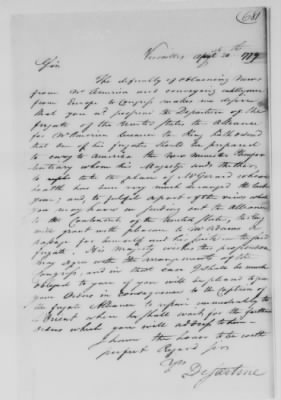 681
Versailles April 20th 1779
Sir
The difficulty of obtaining News
from No. America and conveying intelligence
from Europe to Congress makes me desire
that you progress the Departure of the
frigate of the United States the Alliance
for No. America because the King hath ordered
that one of his frigates should be prepared
to carry to America the new Minister Plenipo-
tentiary whom his Majesty sends thither
to the place of Mr Gerard whose
health has been very much deranged the last
year; and, to fulfil a part of the views which
you may have in sending out the Alliance
to the Continent of the United States, the King
will grant with pleasure to Mr Adams a
passage for himself and his suite in the
frigate. His Majesty makes this proposition
may agree with the arrangements of the
Congress, and in that case I shall be much
obliged to you if you will be pleased to give
your Orders in consequence to the Captain of
the frigate Alliance to repair immediately to
L'Orient where he shall wait for the further
orders which you will address to him.
I have the honor to be with
perfect Regard Sir
Yrs
De Sartine